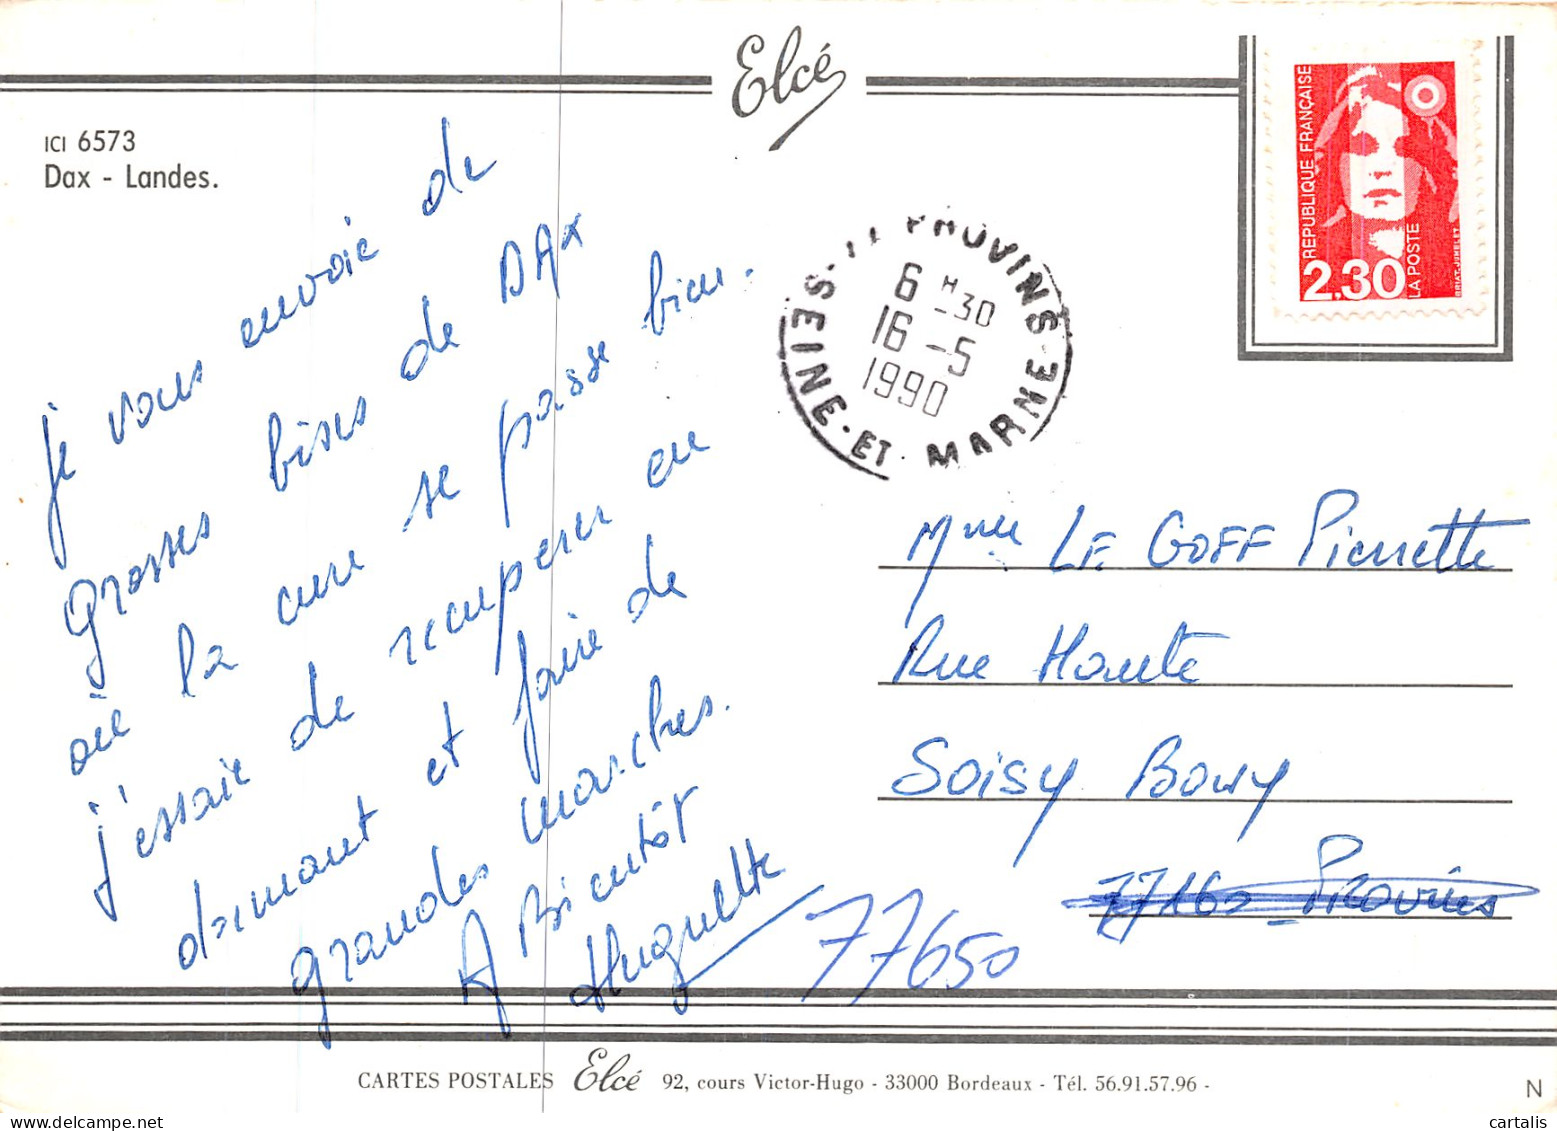 Elcé
ICI 6573
Dax - Landes.
je vous envoie de
grosses bises de DAX
où la cure se passe bien.
j'essaie de recuperer en
dormant et faire de
grandes marches.
A Bientôt
Huguette
77 PROVINS
SEINE-ET-MARNE
6 H 30
16 - 5
1990
REPUBLIQUE FRANÇAISE
2,30
LA POSTE
BRIAT-JUMELET
Mme LE GOFF Pierrette
Rue Haute
Soisy Bouy
77160 - Provins
77650
CARTES POSTALES Elcé 92, cours Victor-Hugo - 33000 Bordeaux - Tél. 56.91.57.96 -
N
cartalis